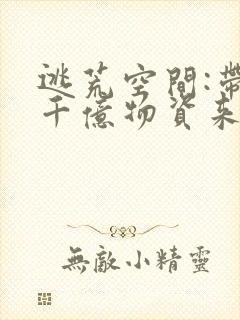 逃荒空間:帶
千億物資來
無敵小精靈